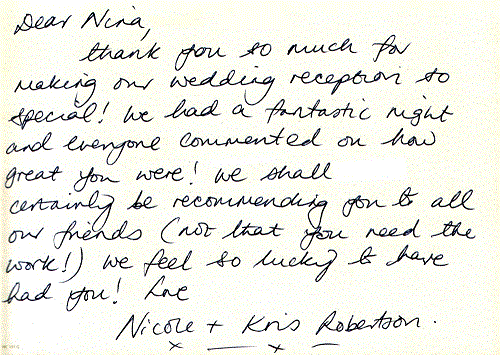 Dear Nina,
thank you so much for
making our wedding reception so
special! We had a fantastic night
and everyone commented on how
great you were! We shall
certainly be recommending you to all
our friends (not that you need the
work!) We feel so lucky to have
had you! Love
Nicole + Kris Robertson.
x x